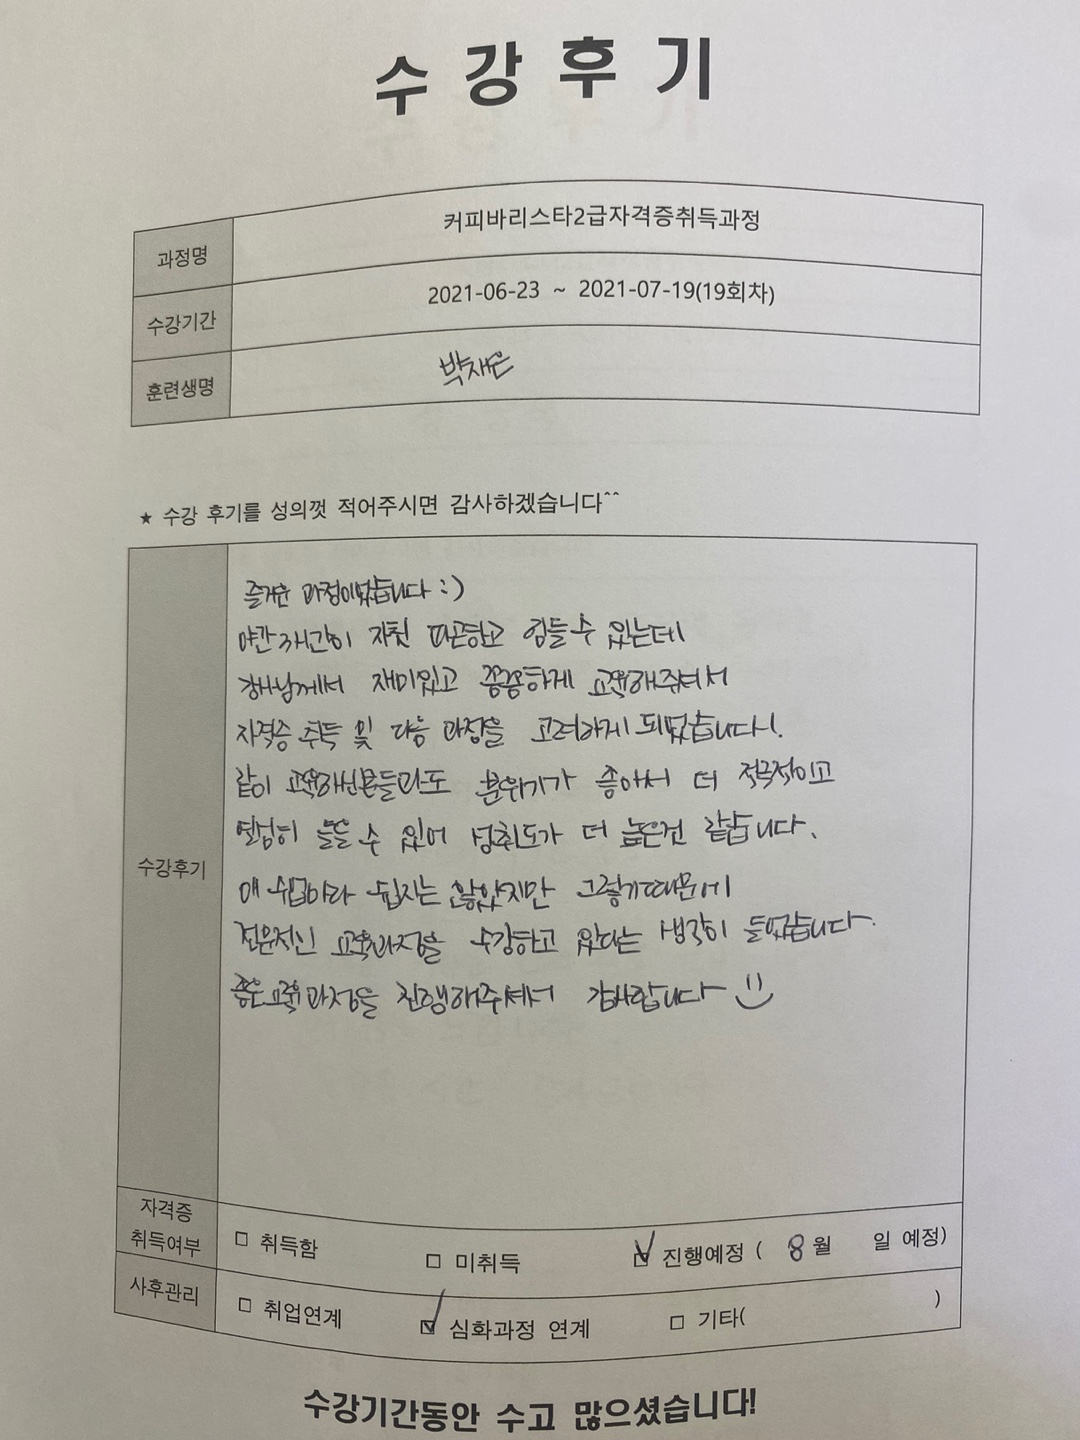 수강후기
과정명 커피바리스타2급자격증취득과정
수강기간 2021-06-23 ~ 2021-07-19(19회차)
훈련생명 박재은
★ 수강 후기를 성의껏 적어주시면 감사하겠습니다^^
수강후기
즐거운 과정이었습니다 :)
야간 3시간이 자칫 피곤하고 힘들 수 있는데
강사님께서 재미있고 꼼꼼하게 교육해주셔서
자격증 취득 및 다음 과정을 고려하게 되었습니다!.
같이 교육하신분들과도 분위기가 좋아서 더 적극적이고
열심히 들을 수 있어 성취도가 더 높은건 같습니다.
매 수업이라 쉽지는 않았지만 그렇기때문에
전문적인 교육과정을 수강하고 있다는 생각이 들었습니다.
좋은 교육 과정을 진행해주셔서 감사합니다
자격증
취득여부 □ 취득함 □ 미취득 ☑ 진행예정 ( 8월 일 예정)
사후관리 □ 취업연계 ☑ 심화과정 연계 □ 기타( )
수강기간동안 수고 많으셨습니다!